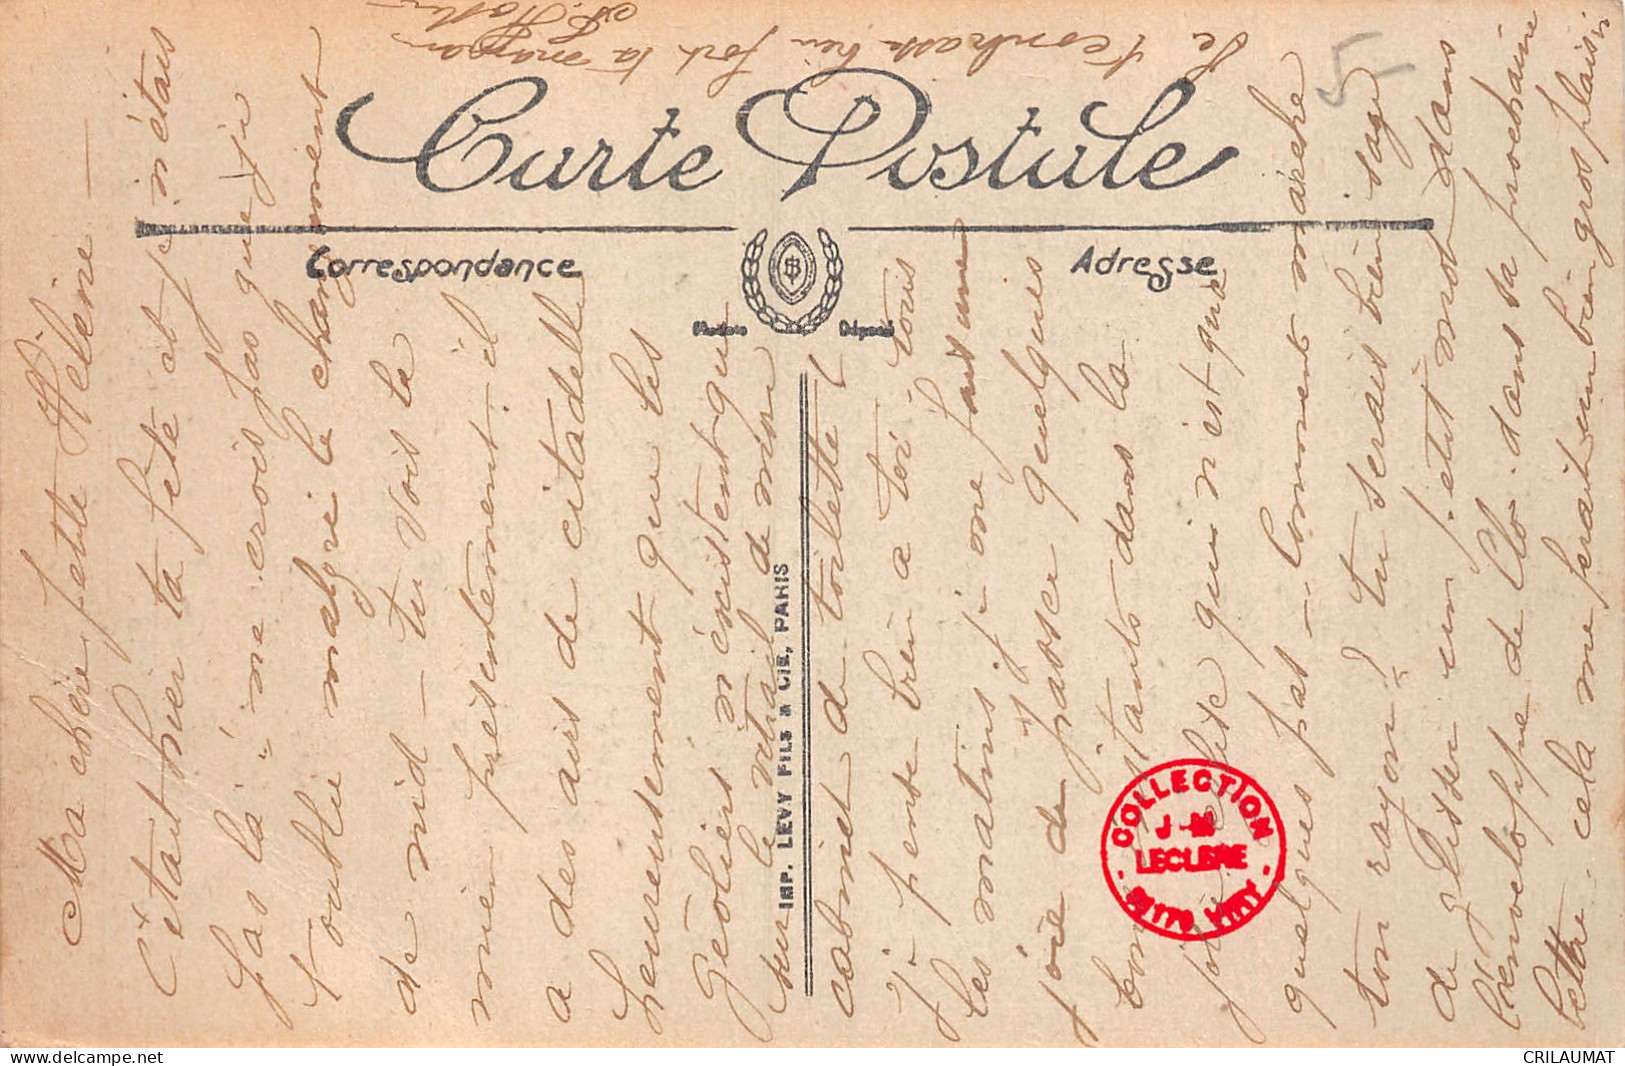 Carte Postale
Correspondance
Adresse
Modèle Déposé
IMP. LEVY FILS & CIE, PARIS
Ma chère petite Hélène —
C'était hier ta fête et je n'étais
pas là, ne crois pas que je
t'oublie malgré le changement
de nid — tu vois le
mien présentement. il
a des airs de citadelle
heureusement que les
geôliers n'existent que
sur le vitrail de mon
cabinet de toilette !
Je pense bien à toi tous
les matins je me fais une
joie de passer quelques
bons instants dans la
jolie qui n'est qu'à
quelques pas — Comment marche
ton rayon ? tu serais bien sage
de glisser un petit mot dans
l'enveloppe de Clo. dans sa prochaine
lettre. cela me ferait un bien gros plaisir
Je t'embrasse bien fort ta
COLLECTION
J-M
LECLERE
VIRY
5
CRILAUMAT